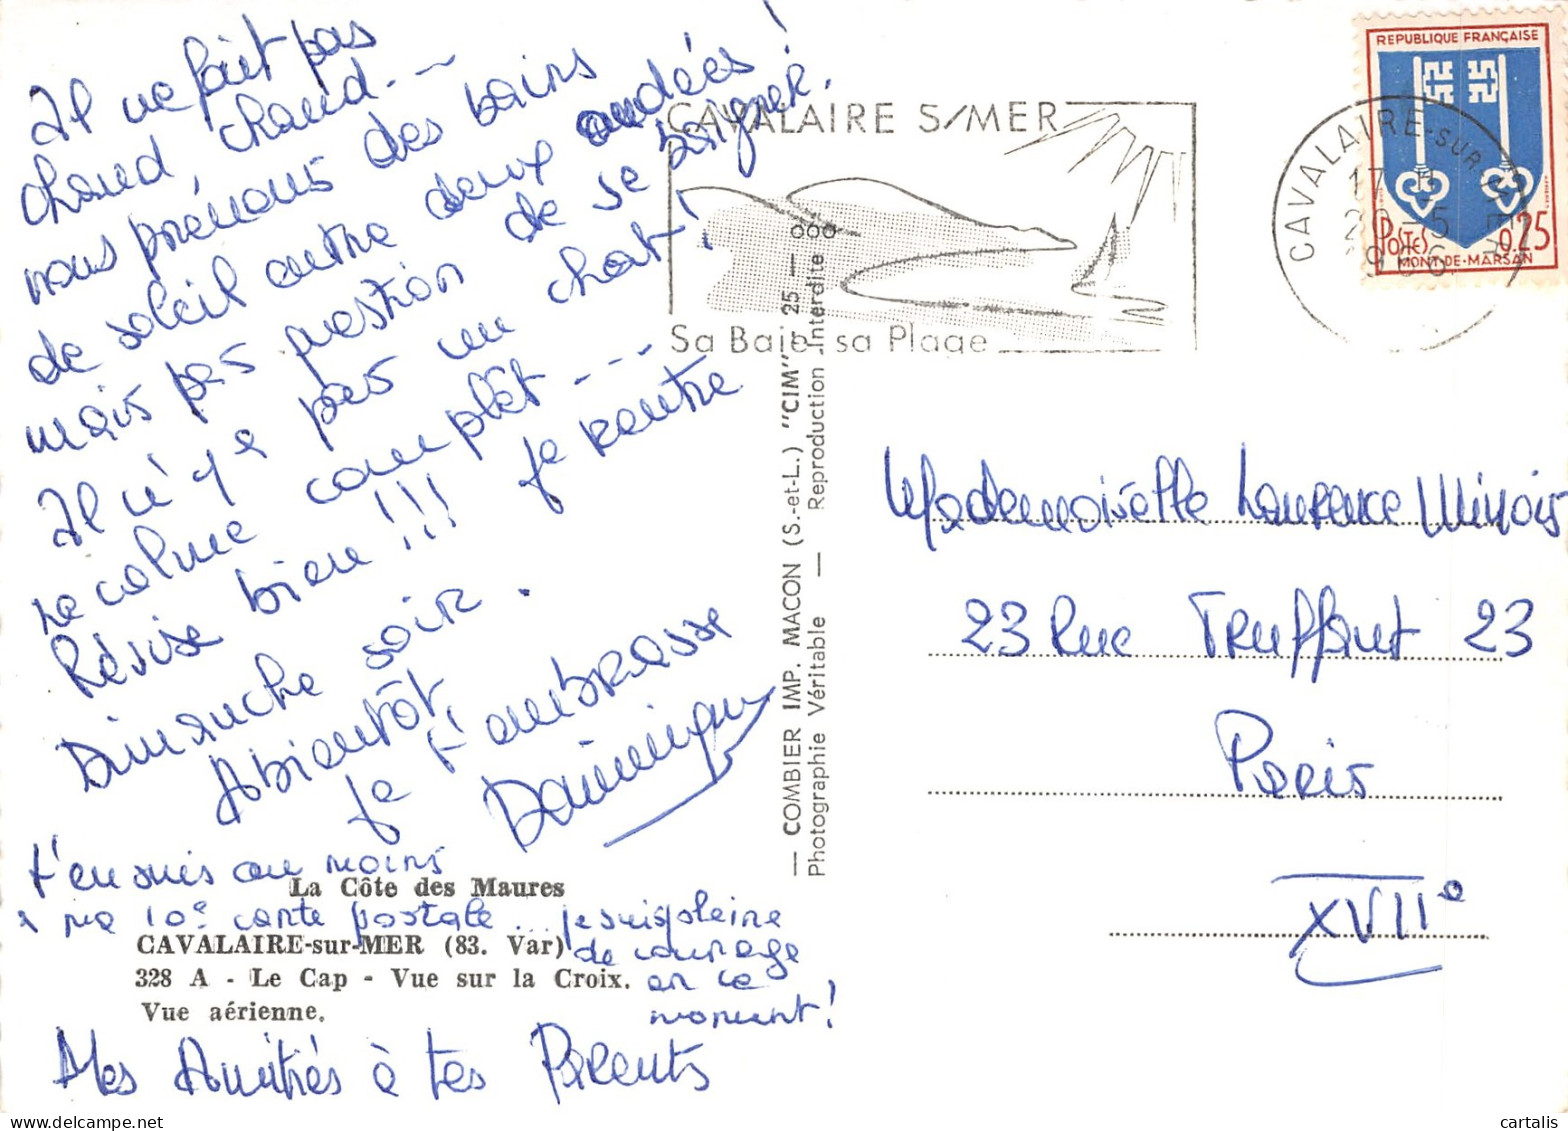 Il ne fait pas
chaud, chaud. --
nous prenons des bains
de soleil entre deux ondées !
mais pas question de se baigner.
Il n'y a pas un chat !
Le calme complèt ---
Révise bien !!! Je rentre
Dimanche soir.
A bientôt,
Je t'embrasse
Dominique
t'en suis au moins
à ma 10e carte postale... je suis pleine
de courage
en ce
moment !
Mes Amitiés à tes Parents
La Côte des Maures
CAVALAIRE-sur-MER (83. Var)
328 A - Le Cap - Vue sur la Croix.
Vue aérienne.
— COMBIER IMP. MACON (S.-et-L.) "CIM" 25 —
Photographie Véritable — Reproduction Interdite
CAVALAIRE S/MER
Sa Baie sa Plage
CAVALAIRE-SUR-MER
REPUBLIQUE FRANÇAISE
POSTES 0.25
MONT-DE-MARSAN
Mademoiselle Laurence Minois
23 Rue Truffaut 23
Paris
XVIIe
cartalis